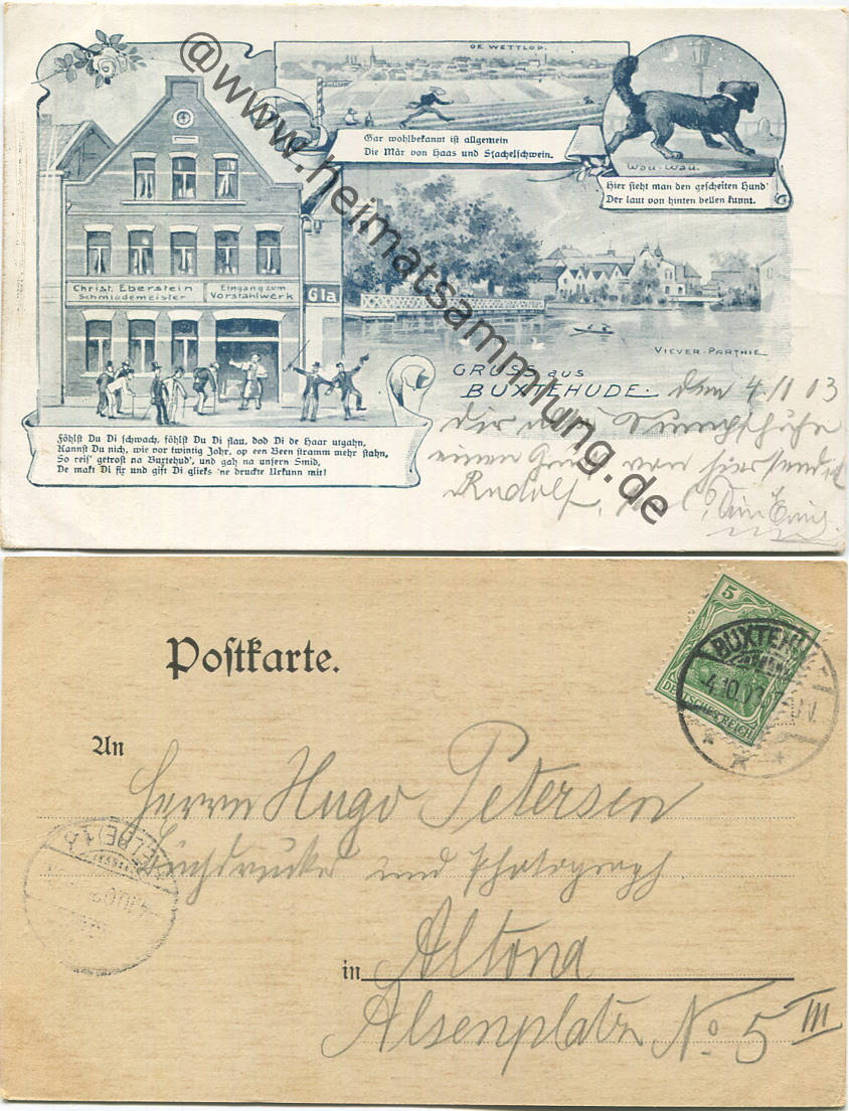 DE WETTLOP.
Gar wohlbekannt ist allgemein
Die Mär von Haas und Stachelschwein.
Wau-Wau.
Hier sieht man den gescheiten Hund'
Der laut von hinten bellen kunnt.
Christ. Eberstein
Schmiedemeister
Eingang zum
Vorstahlwerk
Gla
VIEVER-PARTHIE
GRUSS aus
BUXTEHUDE.
den 4/10 03
Föhlst Du Di schwach, föhlst Du Di flau, dod Di de Haar utgahn,
Kannst Du nich, wie vor twintig Johr, op een Been stramm mehr stahn,
So reis' getrost na Buxtehud', und gah na unsern Smid,
De makt Di fix und gift Di glieks 'ne druckte Urkunn mit!
einen Gruß von hier sendet
Rudolf
@www.heimatsammlung.de
Postkarte.
5
DEUTSCHES REICH
BUXTEHUDE
4.10.03
An
Herrn Hugo Petersen
Buchdrucker und Photograph
(ELBE)
in Altona
Alsenplatz No 5 III